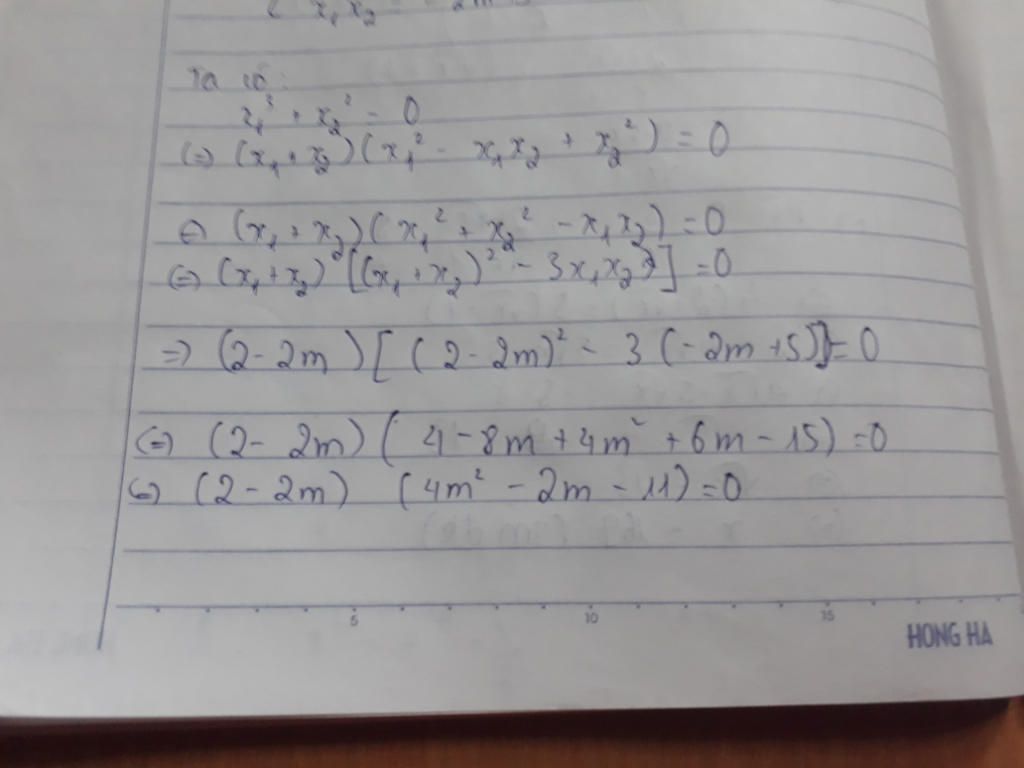 x₁x₂ = -2m
Ta có:
x₁³ + x₂² = 0
(=) (x₁ + x₂)(x₁² - x₁x₂ + x₂²) = 0
(=) (x₁ + x₂)(x₁² + x₂² - x₁x₂) = 0
(=) (x₁ + x₂)² [(x₁ + x₂)² - 3x₁x₂] = 0
=) (2 - 2m) [(2 - 2m)² - 3(-2m + 5)] = 0
(=) (2 - 2m) (4 - 8m + 4m² + 6m - 15) = 0
(=) (2 - 2m) (4m² - 2m - 11) = 0
5 10 15
HONG HA